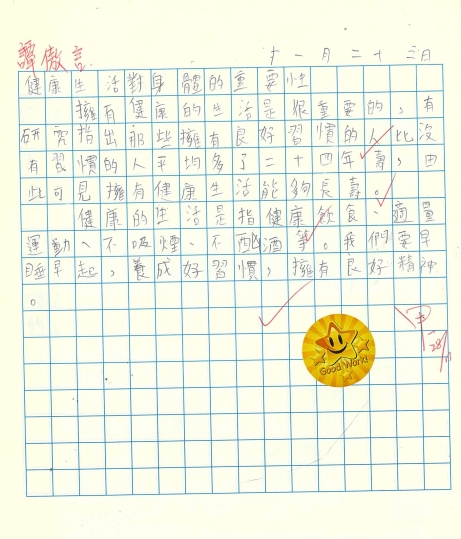 譚傲言 十一月二十三日
健康生活對身體的重要性
擁有健康的生活是很重要的，有
研究指出那些擁有良好習慣的人比沒
有習慣的人平均多了二十四年壽，由
此可見擁有健康生活能夠長壽。
健康的生活是指健康飲食、適量
運動、不吸煙、不酗酒等。我們要早
睡早起，養成好習慣，擁有良好精神
。
Good Work!
28/11